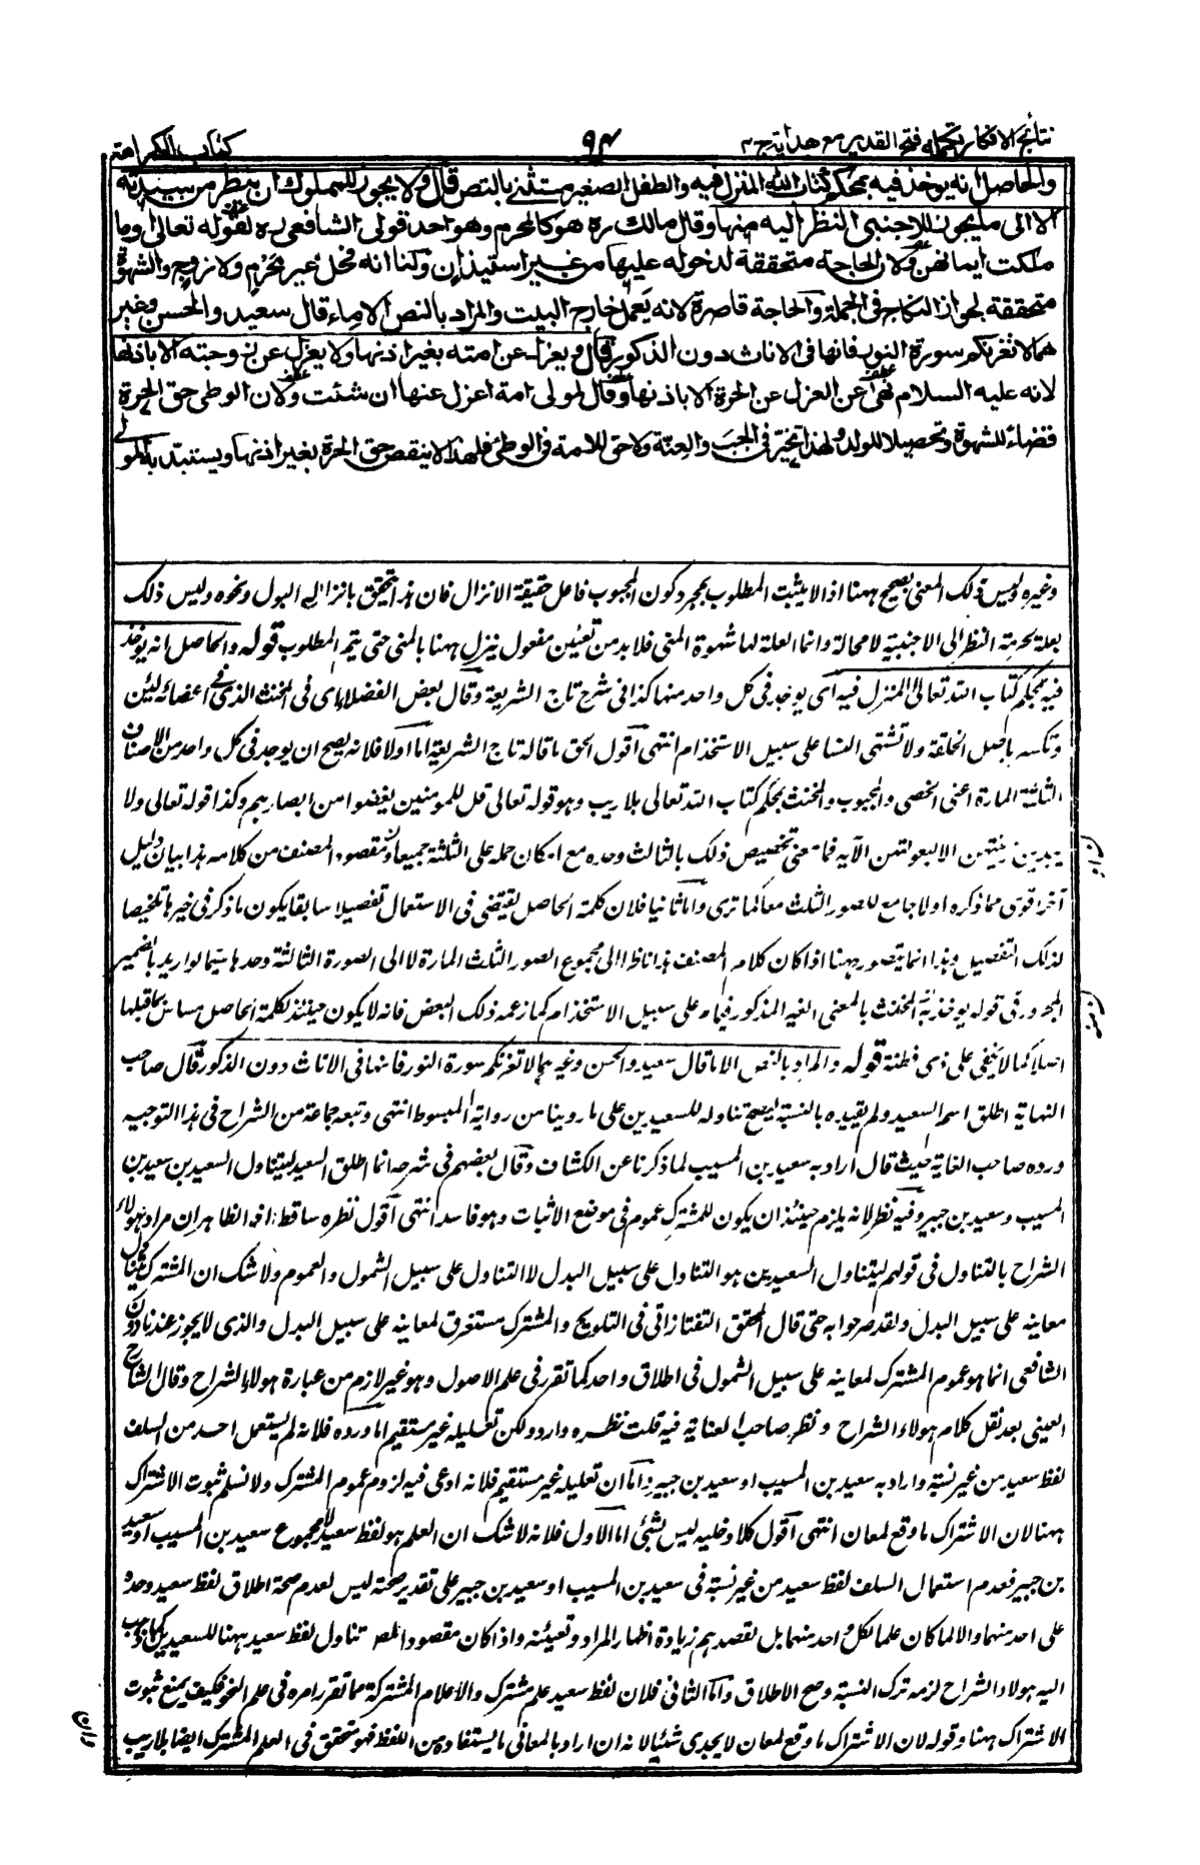 نتائج الافكار تكمله فتح القدير مع هدايه ج ٤
٩٤
كتاب الكراهية
والحاصل انه يوخذ فيه بمحكم كتاب الله المنزل فيه والطفل الصغير مستثنى بالنص قال ولا يجوز للمملوك ان ينظر من سيدته
الا الى ما يجوز للاجنبي النظر اليه منها وقال مالك ره هو كالمحرم وهو احد قولى الشافعى ره لقوله تعالى او ما
ملكت ايمانهن ولان الحاجة متحققة لدخوله عليها من غير استيذان ولنا انه فحل غير محرم ولا زوج والشهوة
متحققة لجواز النكاح فى الجملة والحاجة قاصرة لانه يعمل خارج البيت والمراد بالنص الاماء قال سعيد والحسن وغير
هما لا تغرنكم سورة النور فانها فى الاناث دون الذكور قال ويعزل عن امته بغير اذنها ولا يعزل عن زوجته الا باذنها
لانه عليه السلام نهى عن العزل عن الحرة الا باذنها وقال لمولى امة اعزل عنها ان شئت ولان الوطى حق الحرة
قضاء للشهوة وتحصيلا للولد ولهذا تخير فى الجب والعنة ولا حق للامة فى الوطئ فلهذا لا ينقص حق الحرة بغير اذنها ويستبد به المولى
وغيره وليس ذلك المعنى بصحيح ههنا اذ لا يثبت المطلوب بمجرد كون المجبوب فاعل حقيقة الانزال فان هذا يتحقق بانزال البول ونحوه وليس ذلك
بعلة لحرمة النظر الى الاجنبية لا محالة وانما العلة لها شهوة المنى فلا بد من تعيين مفعول ينزل ههنا بالمنى حتى يتم المطلوب قوله والحاصل انه يوخذ
فيه بمحكم كتاب الله تعالى المنزل فيه اى يوخذ فى كل واحد منها كذا فى شرح تاج الشريعة وقال بعض الفضلاء اى فى المخنث الذى فى اعضائه لين
وتكسر باصل الخلقة ولا تشتهى النسا على سبيل الاستخدام انتهى اقول الحق ما قاله تاج الشريعة اما اولا فلانه يصح ان يوجد فى كل واحد من الاصناف
الثلثة المارة اعنى الخصى والمجبوب والمخنث بمحكم كتاب الله تعالى بلا ريب وهو قوله تعالى قل للمومنين يغضوا من ابصارهم وكذا قوله تعالى ولا
يبدين زينتهن الا لبعولتهن الآية فما معنى تخصيص ذلك بالثالث وحده مع امكان حمله على الثلثة جميعا وان مقصود المصنف من كلامه هذا بيان دليل
آخر اقوى مما ذكره اولا جامع للصور الثلث معا كما ترى واما ثانيا فلان كلمة الحاصل يقتضى فى الاستعمال تفصيلا سابقا يكون ما ذكر فى خيرها تلخيصا
لذلك التفصيل وهذا انما يتصور ههنا اذا كان كلام المصنف هذا ناظرا الى مجموع الصور الثلث المارة لا الى الصورة الثالثة وحدها سيما لو اريد بالضمير
المجرور فى قوله يوخذ فيه المخنث بالمعنى الغير المذكور فيما على سبيل الاستخدام كما زعمه ذلك البعض فانه لا يكون حينئذ لكلمة الحاصل مساس بما قبلها
اصلا كما لا يخفى على ذى فطنة قوله والمراد بالنص الاما قال سعيد والحسن وغيرهما لا تغرنكم سورة النور فانها فى الاناث دون الذكور قال صاحب
النهاية اطلق اسم السعيد ولم يقيده بالنسبة ليصح تناوله للسعيدين على ما روينا من رواية المبسوط انتهى وتبعه جماعة من الشراح فى هذا التوجيه
ورده صاحب الغاية حيث قال اراد به سعيد بن المسيب لما ذكرنا عن الكشاف وقال بعضهم فى شرحه انما اطلق السعيد ليتناول السعيدين سعيد بن
المسيب وسعيد بن جبير وفيه نظر لانه يلزم حينئذ ان يكون للمشترك عموم فى موضع الاثبات وهو فاسد انتهى اقول نظره ساقط اذ الظاهر ان مراد هؤلاء
الشراح بالتناول فى قولهم ليتناول السعيدين هو التناول على سبيل البدل لا التناول على سبيل الشمول والعموم ولا شك ان المشترك يتناول
معاينه على سبيل البدل ولقد صرحوا به حتى قال المحقق التفتازانى فى التلويح والمشترك مستغرق لمعاينه على سبيل البدل والذى لا يجوز عندنا دون
الشافعى انما هو عموم المشترك لمعاينه على سبيل الشمول فى اطلاق واحد كما تقرر فى علم الاصول وهو غير لازم من عبارة هولاء الشراح وقال الشارح
العينى بعد نقل كلام هولاء الشراح ونظر صاحب العناية فيه قلت نظره وارد ولكن تعليله غير مستقيم اما وروده فلانه لم يستعمل احد من السلف
لفظ سعيد من غير نسبة واراد به سعيد بن المسيب او سعيد بن جبير واما ان تعليله غير مستقيم فلانه ادعى فيه لزوم عموم المشترك ولا نسلم ثبوت الاشتراك
ههنا لان الاشتراك ما وقع لمعان انتهى اقول كلا دخليه ليس بشئ اما الاول فلانه لا شك ان العلم هو لفظ سعيد لا مجموع سعيد بن المسيب او سعيد
بن جبير فعدم استعمال السلف لفظ سعيد من غير نسبة فى سعيد بن المسيب او سعيد بن جبير على تقدير صحته ليس لعدم صحة اطلاق لفظ سعيد وحده
على احد منهما والا لما كان علما لكل واحد منهما بل لقصدهم زيادة اظهار المراد وتعيينه واذا كان مقصود المص تناول لفظ سعيد ههنا للسعيدين كما ذهب
اليه هولاء الشراح لزمه ترك النسبة وصح الاطلاق واما الثانى فلان لفظ سعيد علم مشترك والاعلام المشتركة مما تقرر امره فى علم النحو فكيف يمنع ثبوت
الاشتراك ههنا وقوله لان الاشتراك ما وقع لمعان لا يجدى شيئا لانه ان اراد بالمعانى ما يستفاد من اللفظ فهو متحقق فى العلم المشترك ايضا بلا ريب